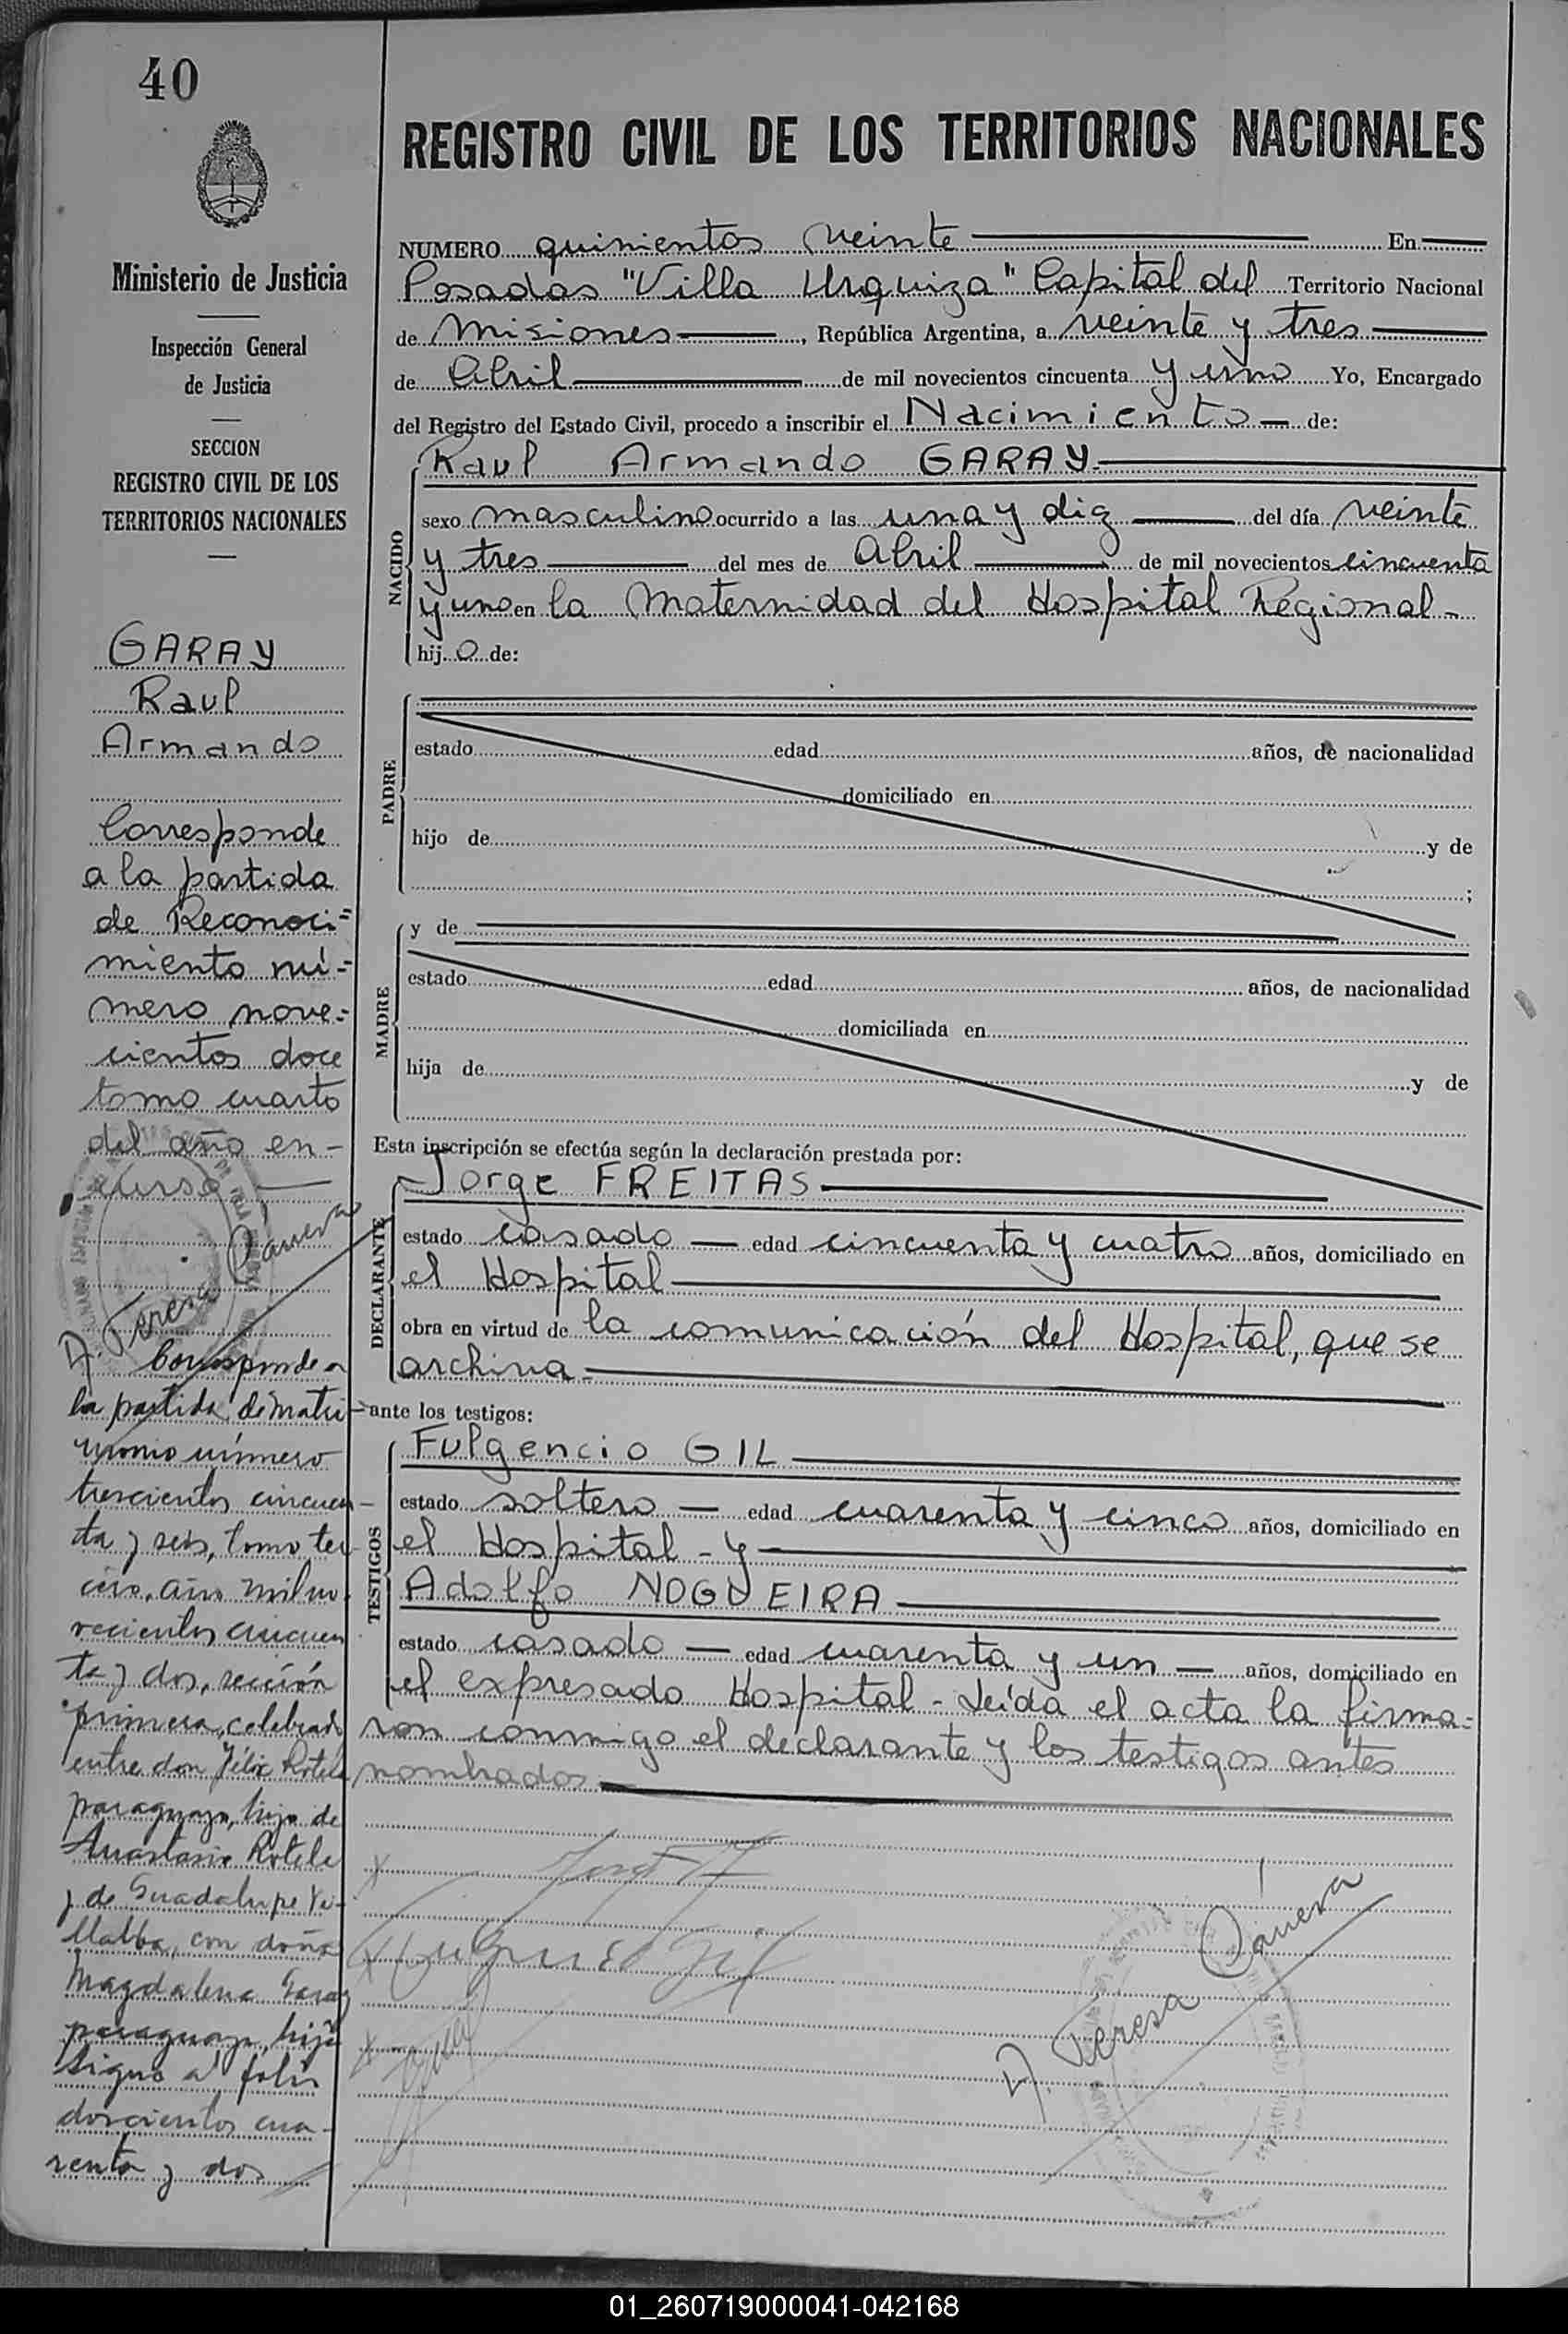 40
Ministerio de Justicia
Inspección General
de Justicia
SECCION
REGISTRO CIVIL DE LOS
TERRITORIOS NACIONALES
GARAY
Raul
Armando
Corresponde
a la partida
de Reconoci=
miento nú=
mero nove=
cientos doce
tomo cuarto
del año en-
curso
A. Teresa
Corresponde a
la partida de matri-
monio número
trescientos cincuen-
ta y seis, tomo ter
cero, año mil no
vecientos cincuen
ta y dos, sección
primera, celebrado
entre don Félix Rotela
paraguayo, hijo de
Anastasio Rotela
y de Guadalupe Vi-
llalba, con doña
Magdalena Garay
paraguaya, hija
sigue al folio
doscientos cua-
renta y dos
REGISTRO CIVIL DE LOS TERRITORIOS NACIONALES
NUMERO quinientos veinte En
Posadas "Villa Urquiza" Capital del Territorio Nacional
de Misiones, República Argentina, a veinte y tres
de Abril de mil novecientos cincuenta y uno Yo, Encargado
del Registro del Estado Civil, procedo a inscribir el Nacimiento de:
NACIDO
Raul Armando GARAY
sexo masculino ocurrido a las una y diez del día veinte
y tres del mes de Abril de mil novecientos cincuenta
y uno en la Maternidad del Hospital Regional-
hijo de:
PADRE
estado edad años, de nacionalidad
domiciliado en
hijo de y de
;
MADRE
y de
estado edad años, de nacionalidad
domiciliada en
hija de y de
Esta inscripción se efectúa según la declaración prestada por:
DECLARANTE
Jorge FREITAS
estado casado edad cincuenta y cuatro años, domiciliado en
el Hospital
obra en virtud de la comunicación del Hospital, que se
archiva-
ante los testigos:
TESTIGOS
Fulgencio GIL
estado soltero edad cuarenta y cinco años, domiciliado en
el Hospital - y
Adolfo NOGUEIRA
estado casado edad cuarenta y un años, domiciliado en
el expresado Hospital - Leída el acta la firma=
ron conmigo el declarante y los testigos antes
nombrados
Fulgencio Gil
A. Teresa
01_260719000041-042168